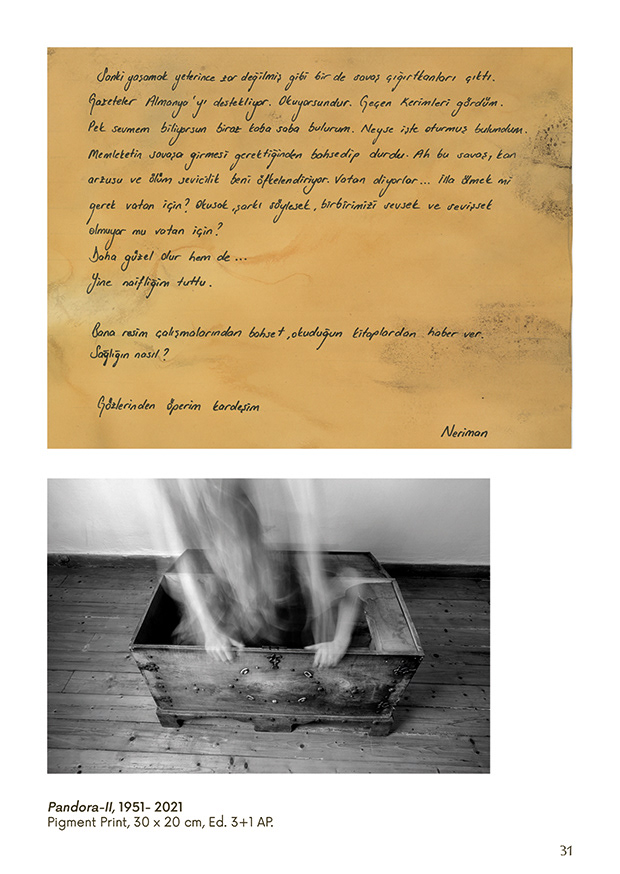 Sanki yaşamak yeterince zor değilmiş gibi bir de savaş çığırtkanları çıktı.
Gazeteler Almanya'yı destekliyor. Okuyorsundur. Geçen Kerimleri gördüm.
Pek sevmem biliyorsun biraz kaba saba bulurum. Neyse işte oturmuş bulundum.
Memleketin savaşa girmesi gerektiğinden bahsedip durdu. Ah bu savaş, kan
arzusu ve ölüm sevicilik beni öfkelendiriyor. Vatan diyorlar... İlla ölmek mi
gerek vatan için? Okusak, şarkı söylesek, birbirimizi sevsek ve sevişsek
olmuyor mu vatan için?
Daha güzel olur hem de...
Yine naifliğim tuttu.
Bana resim çalışmalarından bahset, okuduğun kitaplardan haber ver.
Sağlığın nasıl?
Gözlerinden öperim kardeşim
Neriman
Pandora-II, 1951- 2021
Pigment Print, 30 x 20 cm, Ed. 3+1 AP.
31